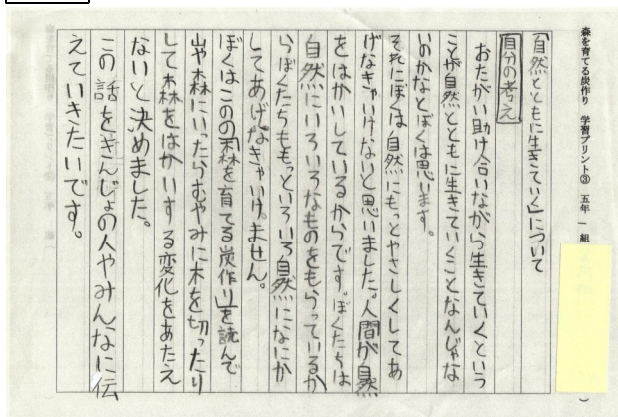 森を育てる炭作り 学習プリント③ 五年 一 組
「自然とともに生きていく」について
自分の考え
おたがい助け合いながら生きていくという
ことが自然とともに生きていくことなんじゃな
いのかなとぼくは思います。
それにぼくは自然にもっとやさしくしてあ
げなきゃいけないと思いました。人間が自然
をはかいしているからです。ぼくたちは
自然にいろいろなものをもらっているか
らぼくたちももっといろいろ自然になにか
してあげなきゃいけません。
ぼくはこのの「森を育てる炭作り」を読んで
山や森にいったらむやみに木を切ったり
して森をはかいする変化をあたえ
ないと決めました。
この話をきんじょの人やみんなに伝
えていきたいです。